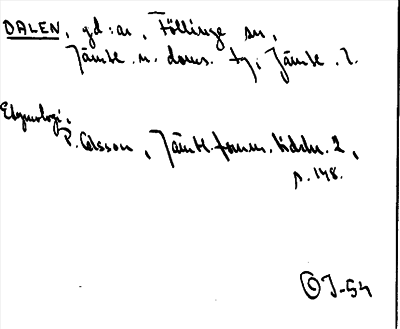 DALEN, gd:ar, Föllinge sn,
Jämtl. n. doms. tg, Jämtl. l.
Etymologi,
P. Olsson, Jämtl. fornm. tidskr. 2,
s. 148.
OJ-54